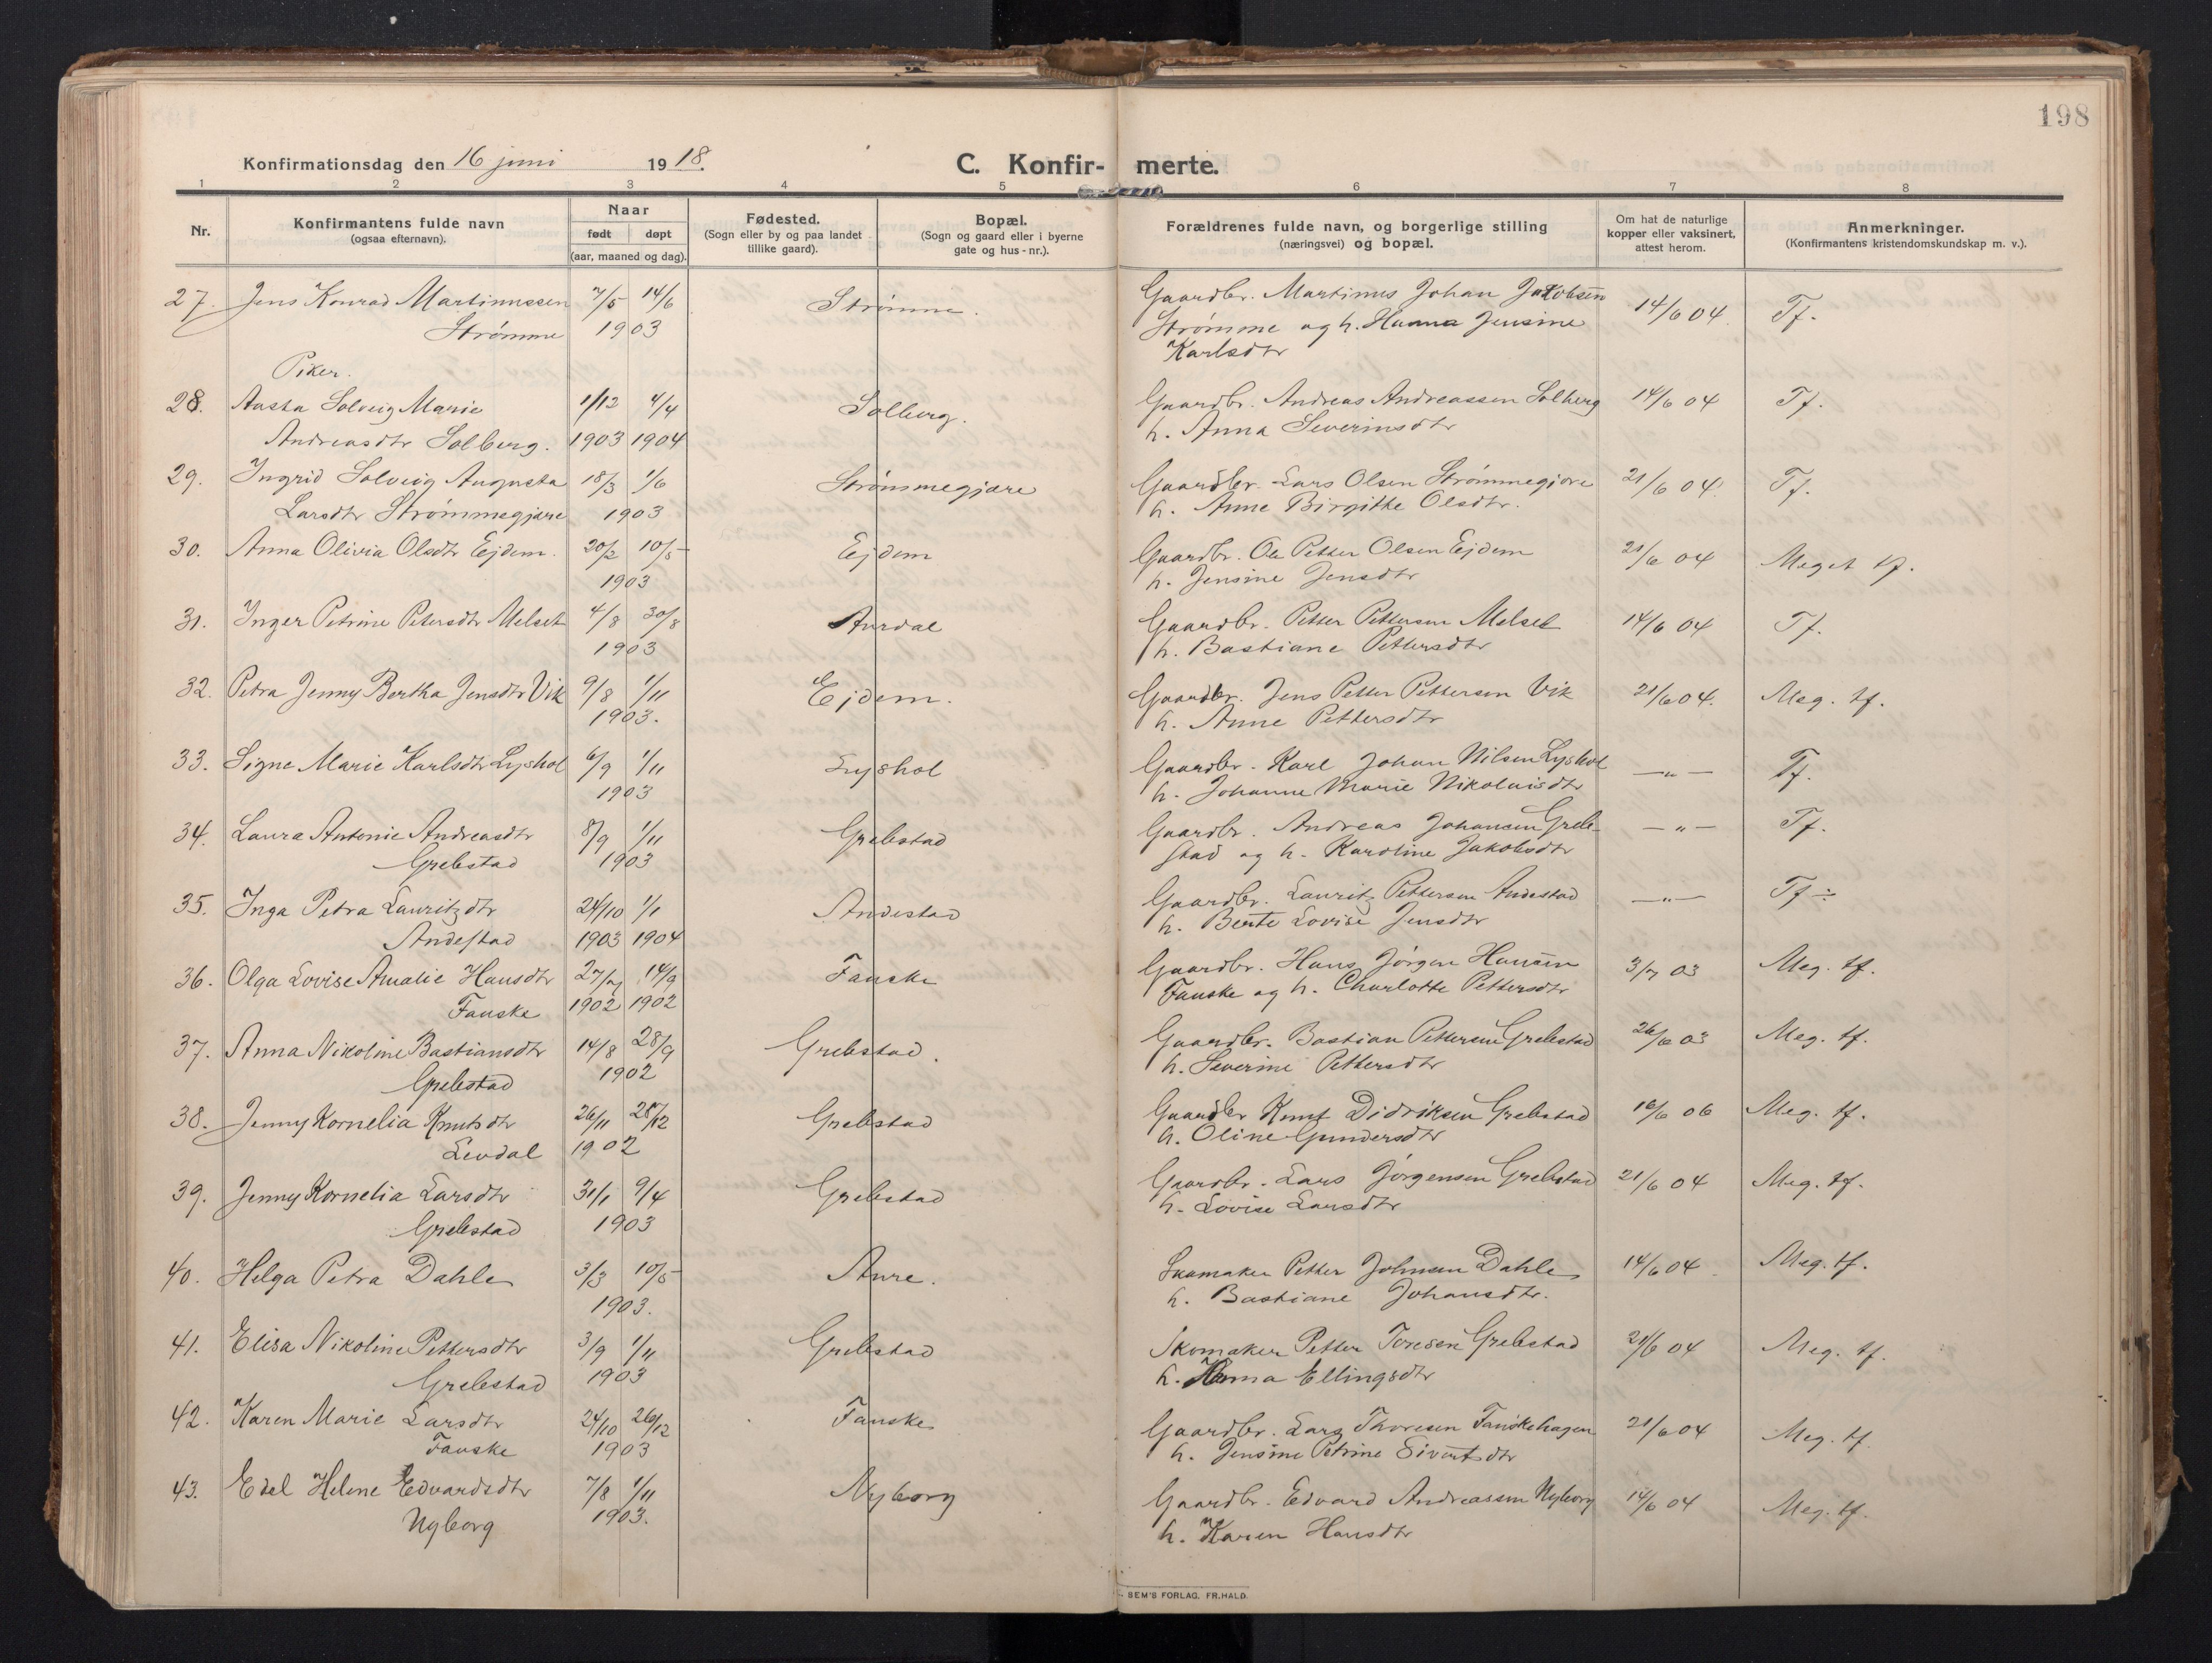 198
Konfirmationsdag den 16 juni 1918.
C. Konfir- merte.
1 2 3 4 5 6 7 8
Nr.
Konfirmantens fulde navn
(ogsaa efternavn).
Naar
født døpt
(aar, maaned og dag).
Fødested.
(Sogn eller by og paa landet
tillike gaard).
Bopæl.
(Sogn og gaard eller i byerne
gate og hus-nr.).
Forældrenes fulde navn, og borgerlige stilling
(næringsvei) og bopæl.
Om hat de naturlige
kopper eller vaksinert,
attest herom.
Anmerkninger.
(Konfirmantens kristendomskundskap m. v.).
27. Jens Konrad Martinussen 7/5 14/6 Strømme. Gaardbr. Martinus Johan Jakobsen 14/6 04 Tf.
Strømme 1903 Strømme og h. Hanna Jensine
Karlsdtr
Piker.
28. Aasta Solveig Marie 1/12 4/4 Solberg. Gaardbr. Andreas Andreassen Solberg 14/6 04 Tf.
Andreasdtr Solberg. 1903 1904 h. Anna Severinsdtr
29. Ingrid Solveig Augusta 18/3 1/6 Strømmegjære Gaardbr. Lars Olsen Strømmegjære 21/6 04. Tf.
Larsdtr Strømmegjære 1903 h. Anne Birgithe Olsdtr.
30. Anna Olivia Olsdtr Ejdem. 20/2 10/5 Ejdem Gaardbr. Ole Petter Olsen Ejdem 21/6 04 Meget tf.
1903 h. Jensine Jensdtr
31. Inger Petrine Petersdtr Melset 4/8 30/8 Aurdal Gaardbr. Petter Pettersen Melset 14/6 04 Tf.
1903 h. Bastiane Pettersdtr
32. Petra Jenny Bertha Jensdtr Vik 9/8 1/11 Ejdem. Gaardbr. Jens Petter Pettersen Vik 21/6 04. Meg. tf.
1903. h. Anne Pettersdtr
33. Signe Marie Karlsdtr Lyshol 6/9 1/11 Lyshol Gaardbr. Karl Johan Nilsen Lyshol —"— Tf.
1903 h. Johanne Marie Nikolaisdtr
34. Laura Antonie Andreasdtr 8/9 1/11 Grebstad Gaardbr. Andreas Johansen Greb- —"— Tf.
Grebstad 1903 stad og h. Karoline Jakobsdtr
35. Inga Petra Lauritzdtr 24/10 1/1 Andestad Gaardbr. Lauritz Pettersen Andestad —"— Tf ÷
Andestad 1903 1904 h. Berte Lovise Jensdtr
36. Olga Lovise Amalie Hansdtr 27/7 14/9 Fauske Gaardbr. Hans Jørgen Hansen 3/7 03 Meg. tf.
Fauske 1902 1902 Fauske og h. Charlotte Pettersdtr
37. Anna Nikoline Bastiansdtr 14/8 28/9 Grebstad. Gaardbr. Bastian Pettersen Grebstad 26/6 03 Meg. tf.
Grebstad 1902 h. Severine Pettersdtr
38. Jenny Kornelia Knutsdtr 26/11 28/12 Grebstad Gaardbr Knut Didriksen Grebstad 16/6 06 Meg. tf.
Levdal 1902 h. Oline Gundersdtr
39. Jenny Kornelia Larsdtr 31/1 9/4 Grebstad Gaardbr. Lars Jørgensen Grebstad 21/6 04 Meg. tf.
Grebstad 1903 h. Lovise Larsdtr
40. Helga Petra Dahle 3/3 10/5 Aure. Skomaker Petter Johnsen Dahle 14/6 04 Meg. tf.
1903. h. Bastiane Johansdtr.
41. Elisa Nikoline Pettersdtr 3/9 1/11 Grebstad Skomaker Petter Toresen Grebstad 21/6 04 Meg. tf.
Grebstad 1903 h. Ellingsdtr
42. Karen Marie Larsdtr 24/10 26/12 Fauske Gaardbr. Lars Thoresen Fauskehagen 21/6 04 Meg. tf.
Fauske 1903 h. Jensine Petrine Sivertsdtr
43. Edel Helene Edvardsdtr 7/8 1/11 Nyborg Gaardbr. Edvard Andreassen Nyborg 14/6 04 Meg. tf.
Nyborg 1903. h. Karen Hansdtr
SEM'S FORLAG. FR.HALD